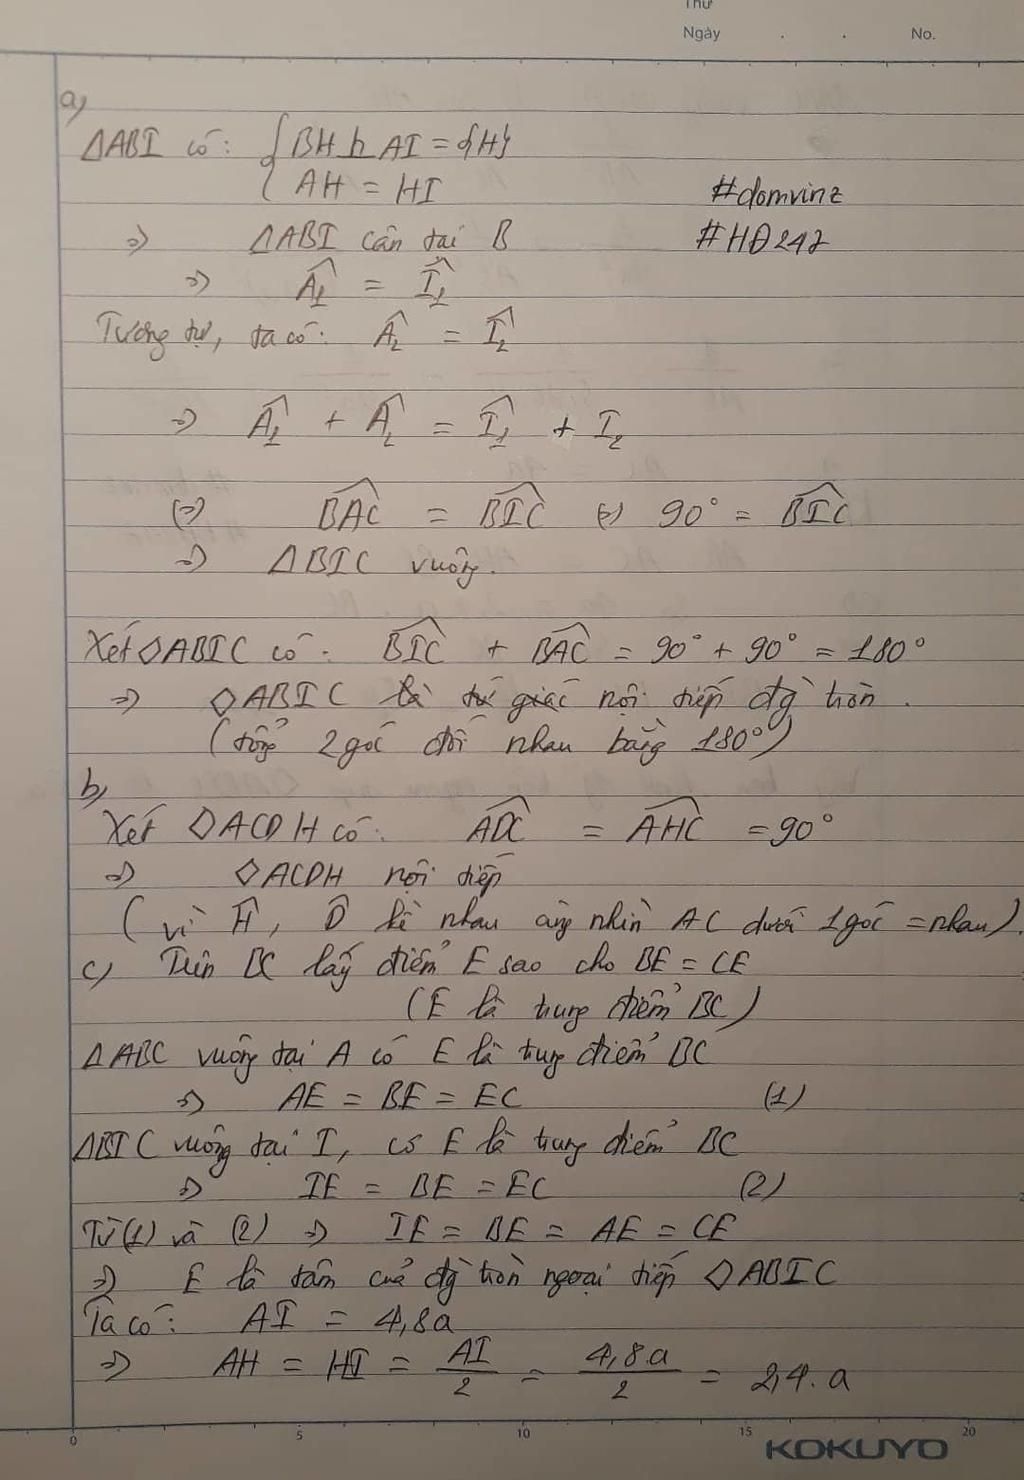 Thứ
Ngày . . No.
a)
ΔABI có: { BH ⊥ AI = {H}
AH = HI
#domvinz
⇒ ΔABI cân tại B
#HĐ247
⇒ Â₁ = Î₁
Tương tự, ta có: Â₂ = Î₂
⇒ Â₁ + Â₂ = Î₁ + I₂
(⇒) BAC = BIC (⇒) 90° = BIC
⇒ ΔBIC vuông.
Xét ◇ABIC có: BIC + BAC = 90° + 90° = 180°
⇒ ◇ABIC là tứ giác nội tiếp đg tròn.
(tổng 2 góc đối nhau bằng 180°)
b)
Xét ◇ACDH có: ADC = AHC = 90°
⇒ ◇ACDH nội tiếp
(vì Ĥ, D̂ kề nhau cùng nhìn AC dưới 1 góc = nhau).
c) Trên BC lấy điểm E sao cho BE = CE
(E là trung điểm BC)
ΔABC vuông tại A có E là trung điểm BC
⇒ AE = BE = EC (1)
ΔBIC vuông tại I, có E là trung điểm BC
⇒ IE = BE = EC (2)
Từ (1) và (2) ⇒ IE = BE = AE = CE
⇒ E là tâm của đg tròn ngoại tiếp ◇ABIC
Ta có: AI = 4,8a
⇒ AH = HI = AI/2 = 4,8.a/2 = 2,4.a
0 5 10 15 20
KOKUYO